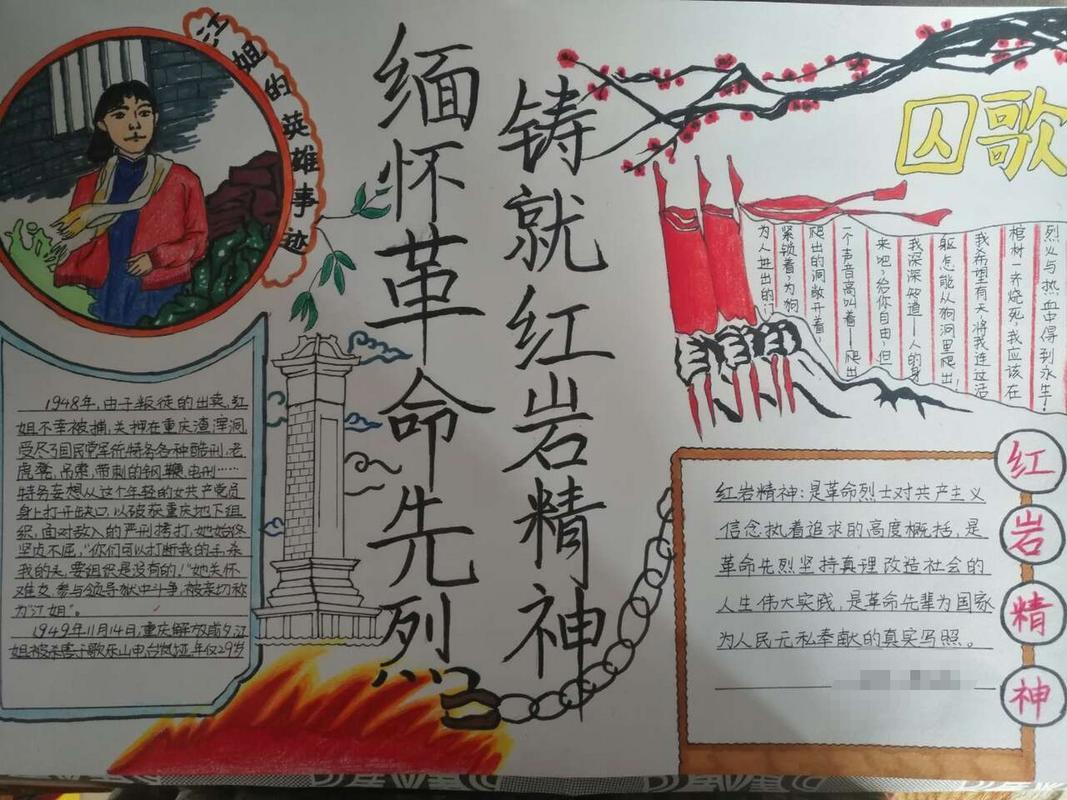 江姐的英雄事迹
缅怀革命先烈
铸就红岩精神
囚歌
1948年，由于叛徒的出卖，江
姐不幸被捕，关押在重庆渣滓洞，
受尽了国民党军统特务各种酷刑，老
虎凳、吊索、带刺的钢鞭、电刑……
特务妄想从这个年轻的女共产党员
身上打开缺口，以破获重庆地下组
织，面对敌人的严刑拷打，她始终
坚贞不屈，"你们可以打断我的手，杀
我的头，要组织是没有的！"她关怀
难友，参与领导狱中斗争，被亲切称
为"江姐"。
1949年11月14日，重庆解放前夕，江
姐被杀害于歌乐山电台岚垭，年仅29岁
为人进出的门
紧锁着，为狗
爬出的洞敞开着，
一个声音高叫着——爬出
来吧，给你自由，但
我深深知道——人的身
躯怎能从狗洞里爬出！
我希望有天，将我连这活
棺材一齐烧死，我应该在
烈火与热血中得到永生！
红岩精神
红岩精神：是革命烈士对共产主义
信念执着追求的高度概括，是
革命先烈坚持真理改造社会的
人生伟大实践，是革命先辈为国家
为人民无私奉献的真实写照。